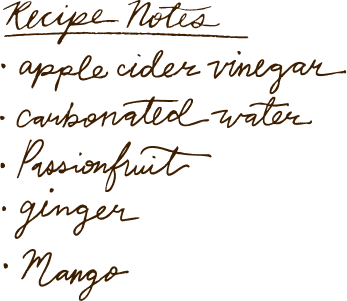 Recipe Notes
· apple cider vinegar
· carbonated water
· Passionfruit
· ginger
· Mango